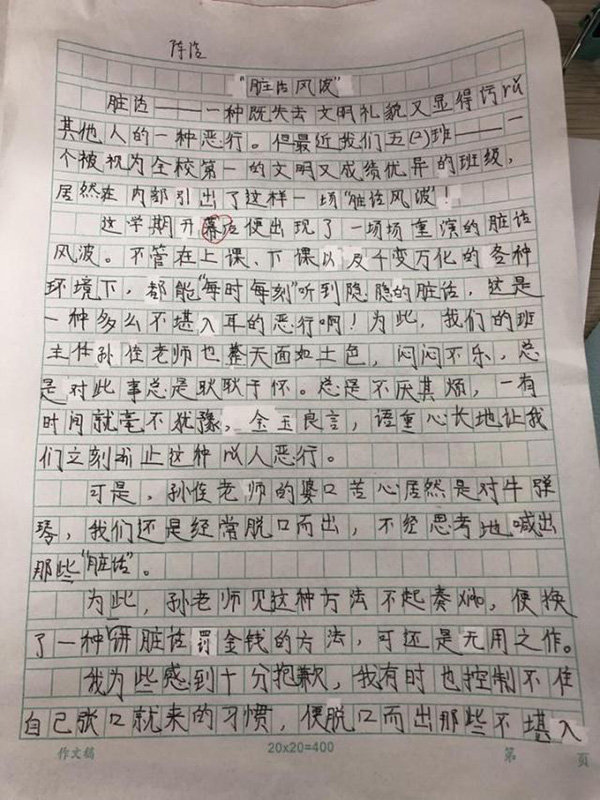 陈洁
“脏话风波”
脏话———一种既失去文明礼貌又显得污rǔ
其他人的一种恶行。但最近我们五(2)班———一
个被视为全校第一的文明又成绩优异的班级，
居然在内部引出了这样一场“脏话风波！
这学期开幕后便出现了一场场重演的脏话
风波。不管在上课、下课以及千变万化的各种
环境下，都能“每时每刻”听到隐隐的脏话，这是
一种多么不堪入耳的恶行啊！为此，我们的班
主任孙佳老师也天面如土色，闷闷不乐，总
是对此事总是耿耿于怀。总是不厌其烦，一有
时间就毫不犹豫，金玉良言，语重心长地让我
们立刻止这种人恶行。
可是，孙佳老师的婆口苦心居然是对牛弹
琴，我们还是经常脱口而出，不经思考地喊出
那些“脏话”。
为此，孙老师见这种方法不起奏xiào，便换
了一种讲脏话罚金钱的方法，可还是无用之作。
我为些感到十分抱歉，我有时也控制不住
自己张口就来的习惯，便脱口而出那些不堪入
作文稿
20x20=400
第
页